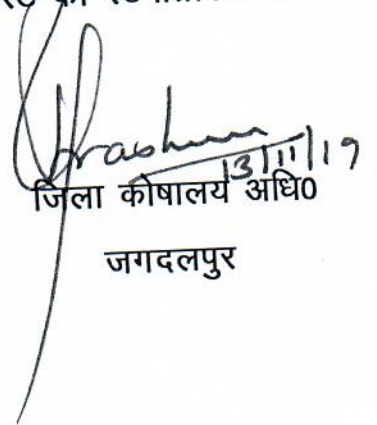 13/11/19
जिला कोषालय अधि0
जगदलपुर